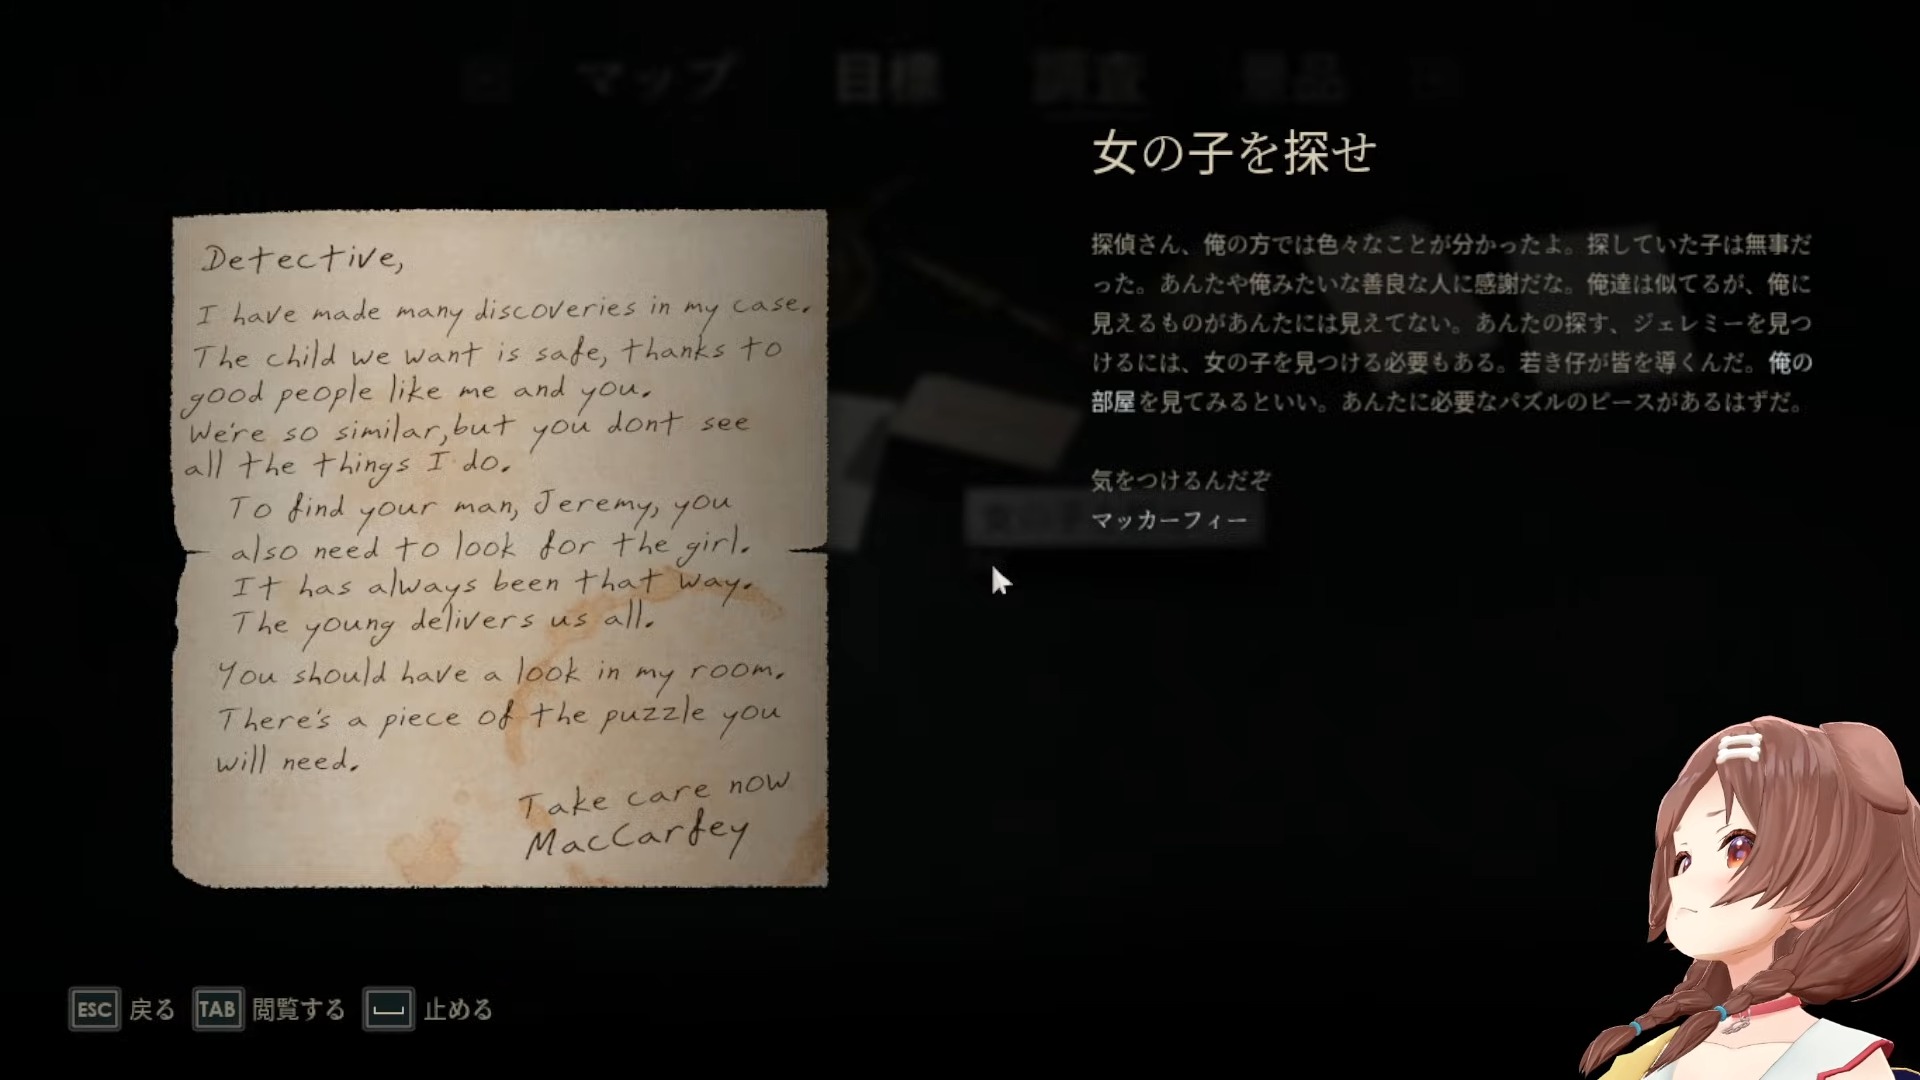 マップ
目標
調査
景品
Detective,
I have made many discoveries in my case.
The child we want is safe, thanks to
good people like me and you.
We're so similar, but you dont see
all the things I do.
To find your man, Jeremy, you
also need to look for the girl.
It has always been that way.
The young delivers us all.
You should have a look in my room.
There's a piece of the puzzle you
will need.
Take care now
MacCarfey
女の子を探せ
探偵さん、俺の方では色々なことが分かったよ。探していた子は無事だ
った。あんたや俺みたいな善良な人に感謝だな。俺達は似てるが、俺に
見えるものがあんたには見えてない。あんたの探す、ジェレミーを見つ
けるには、女の子を見つける必要もある。若き仔が皆を導くんだ。俺の
部屋を見てみるといい。あんたに必要なパズルのピースがあるはずだ。
気をつけるんだぞ
マッカーフィー
ESC 戻る TAB 閲覧する 止める